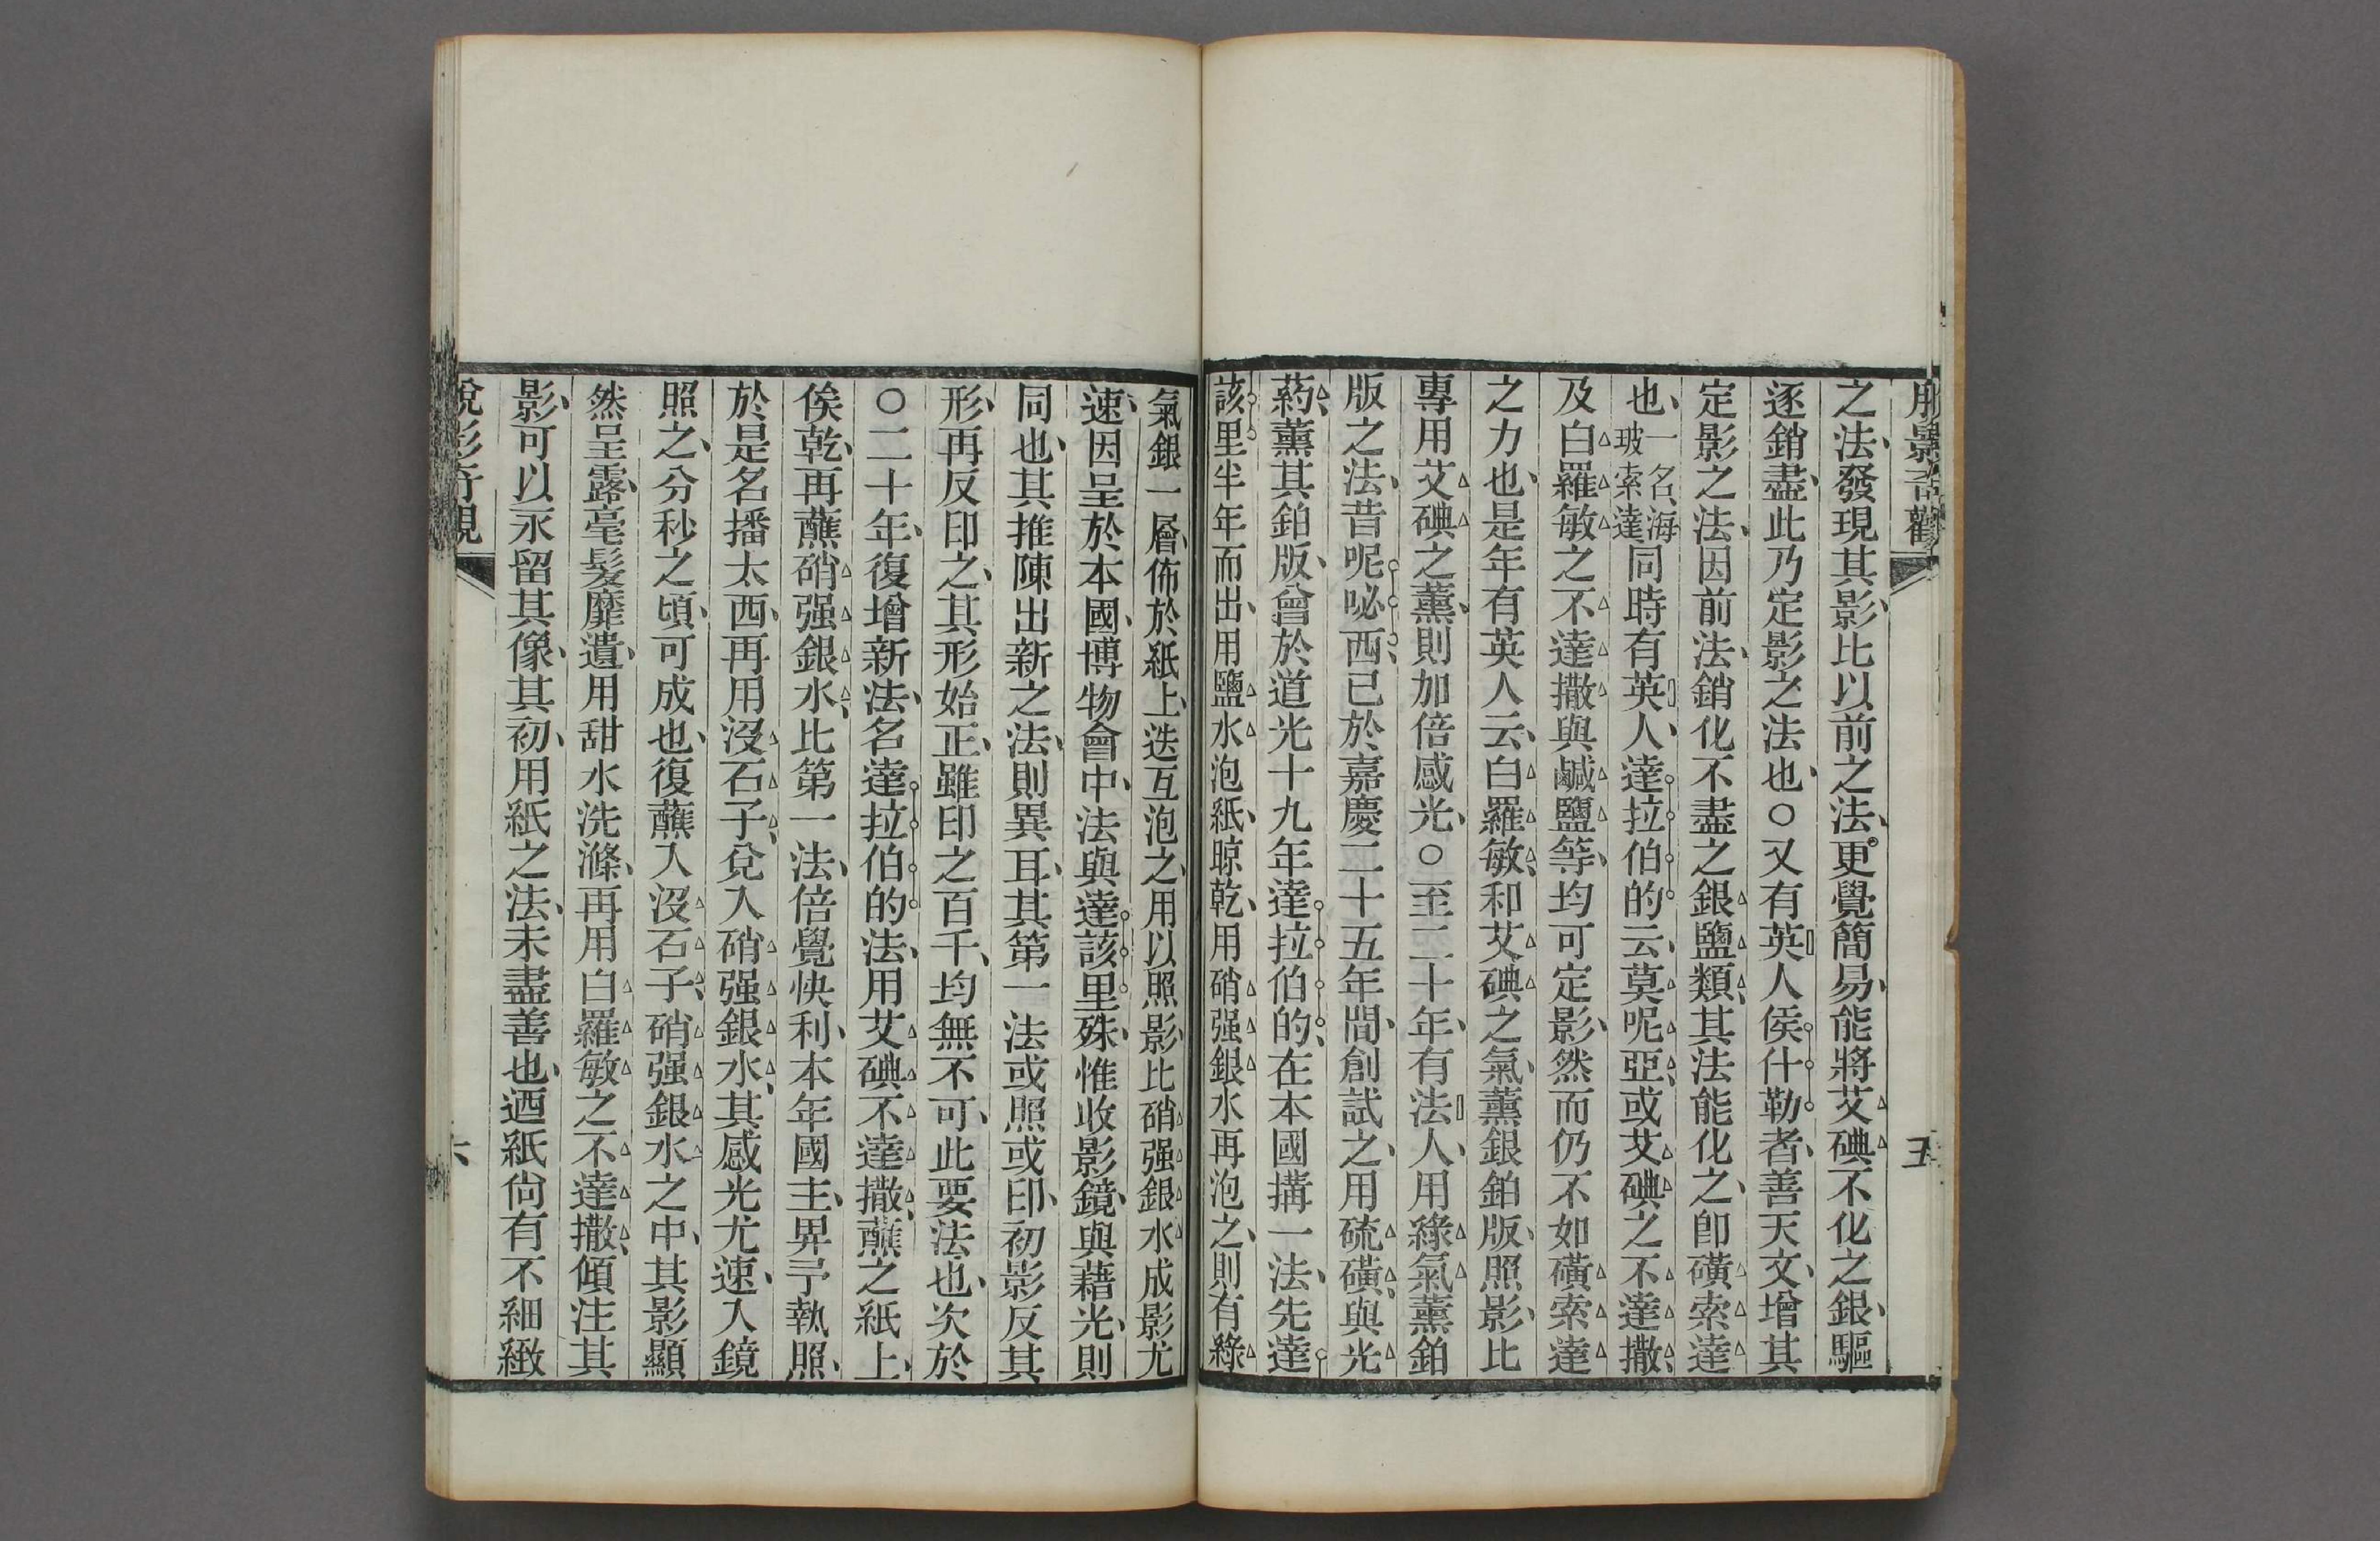 脫影奇觀
五
之法、發現其影、比以前之法、更覺簡易、能將艾碘不化之銀、驅
逐銷盡、此乃定影之法也、○又有英人侯什勒者、善天文、增其
定影之法、因前法、銷化不盡之銀鹽類、其法能化之、卽磺索達
也、一名海玻索達同時有英人、達拉伯的云、莫呢亞、或艾碘之不達撒、
及白羅敏之不達撒與鹹鹽等、均可定影、然而仍不如磺索達
之力也、是年有英人云、白羅敏、和艾碘之氣、薰銀鉑版、照影、比
專用艾碘之薰、則加倍感光、○至二十年、有法人、用綠氣薰鉑
版之法、昔呢咇西、已於嘉慶二十五年間、創試之、用硫磺、與光
葯、薰其鉑版、曾於道光十九年達拉伯的、在本國搆一法、先達
該里半年而出、用鹽水泡紙、晾乾、用硝强銀水再泡之、則有綠
氣銀一層、佈於紙上、迭互泡之、用以照影、比硝强銀水成影尤
速、因呈於本國、博物會中、法與達該里殊、惟收影鏡、與藉光、則
同也、其推陳出新之法、則異耳、其第一法或照或印、初影反其
形、再反印之、其形始正、雖印之百千、均無不可、此要法也、次於
○二十年、復增新法、名達拉伯的法、用艾碘不達撒、蘸之紙上、
俟乾、再蘸硝强銀水、比第一法、倍覺快利、本年國主、畀予執照、
於是名播太西、再用沒石子、兌入硝强銀水、其感光尤速、入鏡
照之、分秒之頃、可成也、復蘸入沒石子、硝强銀水之中、其影顯
然呈露、毫髮靡遺、用甜水洗滌、再用白羅敏之不達撒、傾注其
影、可以永留其像、其初、用紙之法、未盡善也、迺紙尙有不細緻
脫影奇觀
六